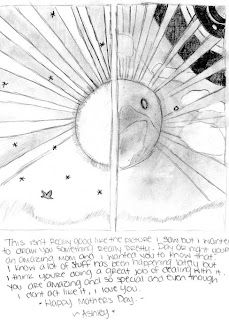 This isn't really good like the picture I saw but I wanted
to draw you something really pretty. Day or night your
an amazing Mom and I wanted you to know that.
I know a lot of stuff has been happening lately but
I think you're doing a great job of dealing with it.
You are amazing and so special and even though
I don't act like it, I love you.
- Happy Mother's Day -
~ Ashley